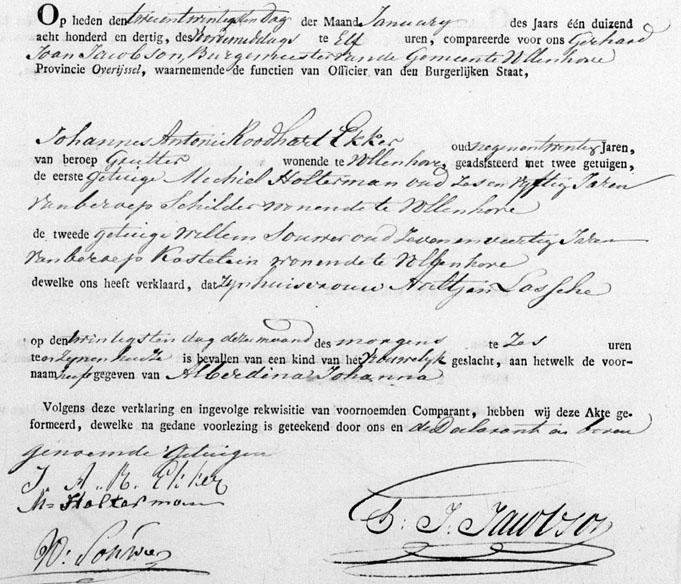 Op heden den tweeentwintigsten Dag der Maand January des Jaars één duizend
acht honderd en dertig, des Voormiddags te Elf uren, compareerde voor ons Gerhard
Joan Jacobson, Burgemeester van de Gemeente Vollenhove
Provincie Overijssel, waarnemende de functien van Officier van den Burgerlijken Staat,
Johannes Antonie Roodhard Ekker oud negenentwintig Jaren,
van beroep wonende te Vollenhove, geadsisteerd met twee getuigen,
de eerste getuige Michiel Holterman oud Zes en vyftig Jaren
van beroep Schilder wonende te Vollenhove
de tweede getuige Willem Souwer oud Zeven en veertig Jaren
van beroep Kastelein wonende te Vollenhove
dewelke ons heeft verklaard, dat Zyn huisvrouw Aaltjen Lassche
op den twintigsten dag dezer maand des morgens te Zes uren
te en Zynen huize is bevallen van een kind van het Vrouwelyk geslacht, aan hetwelk de voor-
naam is gegeven van Alberdina Johanna
Volgens deze verklaring en ingevolge rekwisitie van voornoemden Comparant, hebben wij deze Akte ge-
formeerd, dewelke na gedane voorlezing is geteekend door ons en de Declarant en boven
genoemde Getuigen
J. A. R. Ekker
M. Holterman
G. J. Jacobson
W. Souwer